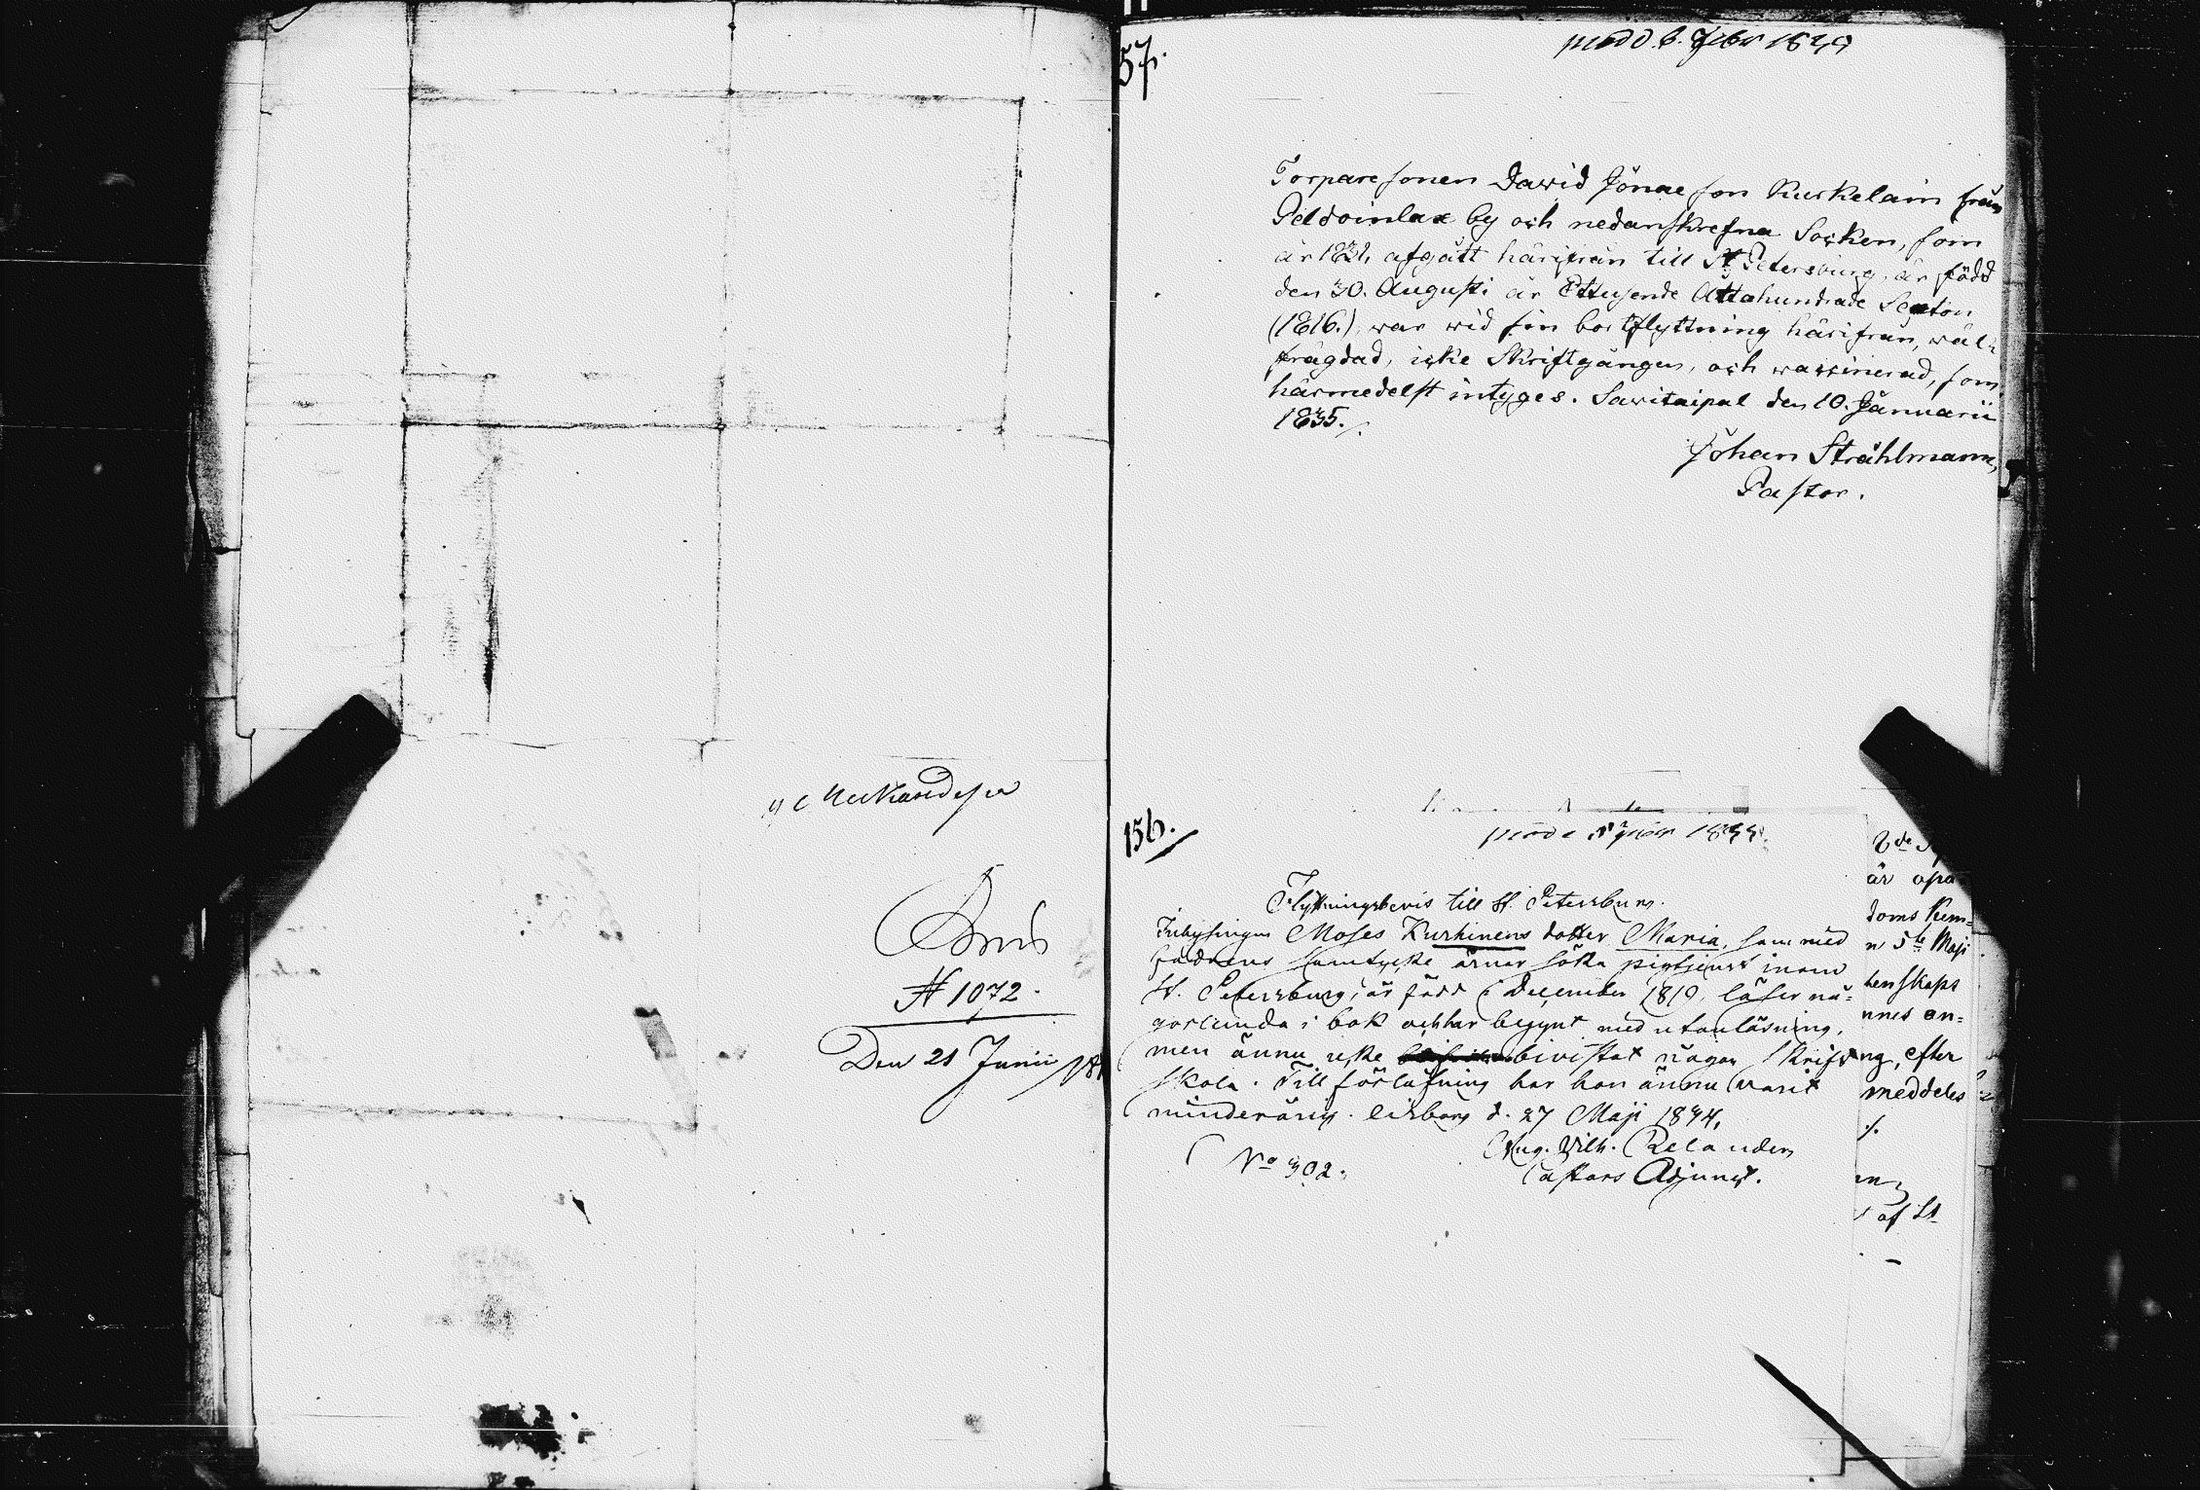 Den 21 Junii 18
N 1072.
57.
Torparesonen David Jönae son Kurkelain från
Peldoinlax by och nedanskrefna Socken, som
år 1831, afgått härifrån till St Petersburg, är född
den 30. Augusti år Ettusende Åttahundrade Sexton
(1816.), war wid sin bortflyttning härifrån, wäl-
frägdad, icke Skriftgången, och waccinerad, som
härmedelst intyges. Savitaipal den 10. Januarii
1835.
Johan Stråhlmann,
Pastor.
156.
Flyttningsbevis till St. Petersburg.
Inhysingen Moses Kurhinens dotter Maria, som med
fadrens samtycke ärnar söka pigtjenst inom
St. Petersburg, är född i December 1819, läser nå-
gorlunda i bok och har begynt med utanläsning,
men ännu icke bivistat någon Skrift
skola. Till förlofning har hon ännu varit
minderårig. d. 27 Maji 1834.
Aug. Vilh. Relander
No 302.
Pastors Adjunct.
är
doms Kem-
n 5te Maji
henskaps
nnes en-
ng, efter
meddeles
./.
af St.